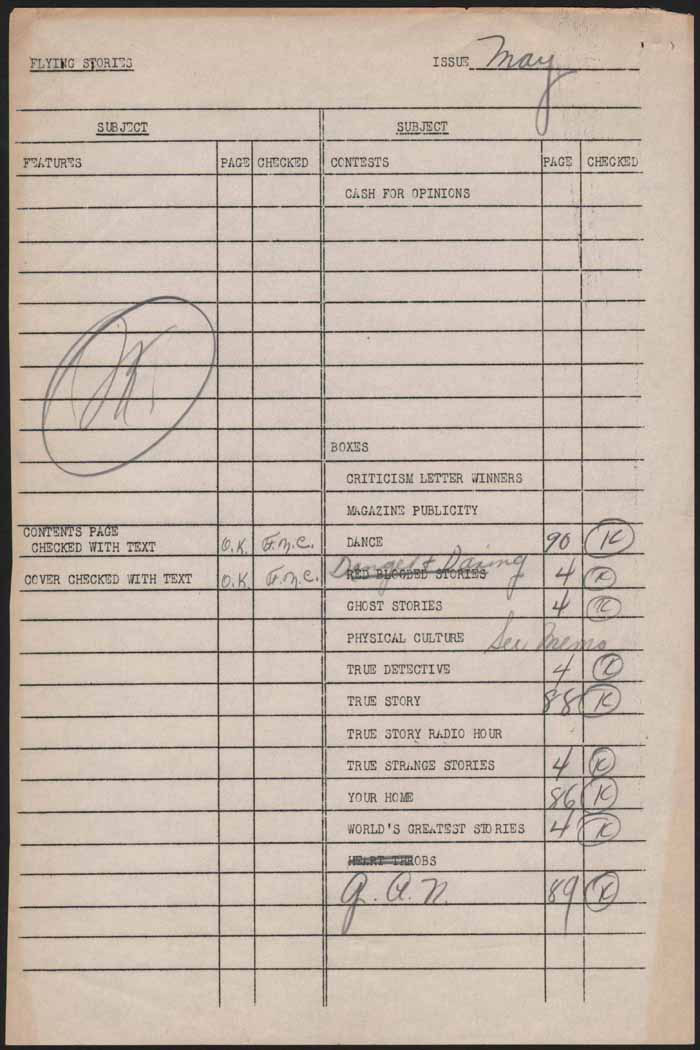 FLYING STORIES ISSUE May
SUBJECT SUBJECT
FEATURES PAGE CHECKED CONTESTS PAGE CHECKED
CASH FOR OPINIONS
BOXES
CRITICISM LETTER WINNERS
MAGAZINE PUBLICITY
CONTENTS PAGE
CHECKED WITH TEXT O.K. F.M.C. DANCE 90 K
Danger & Daring
COVER CHECKED WITH TEXT O.K. F.M.C. RED BLOODED STORIES 4 K
GHOST STORIES 4 K
PHYSICAL CULTURE See Memo
TRUE DETECTIVE 4 K
TRUE STORY 88 K
TRUE STORY RADIO HOUR
TRUE STRANGE STORIES 4 K
YOUR HOME 86 K
WORLD'S GREATEST STORIES 4 K
HEART THROBS
G. A. N. 89 K